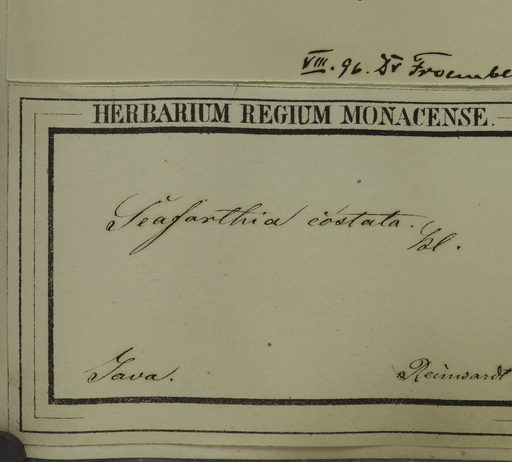 VIII. 96. Dr Froembe
HERBARIUM REGIUM MONACENSE.
Seaforthia costata.
Bl.
Java.
Reinwardt